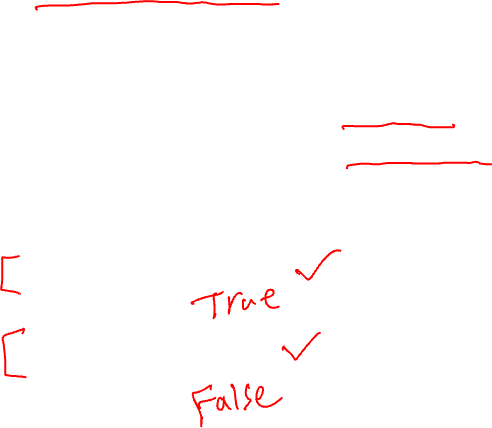 True ✓
False ✓